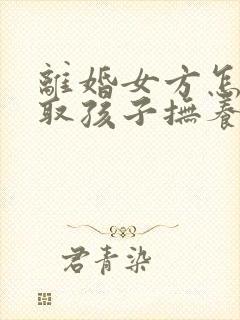 離婚女方怎
取孩子撫養
君青染